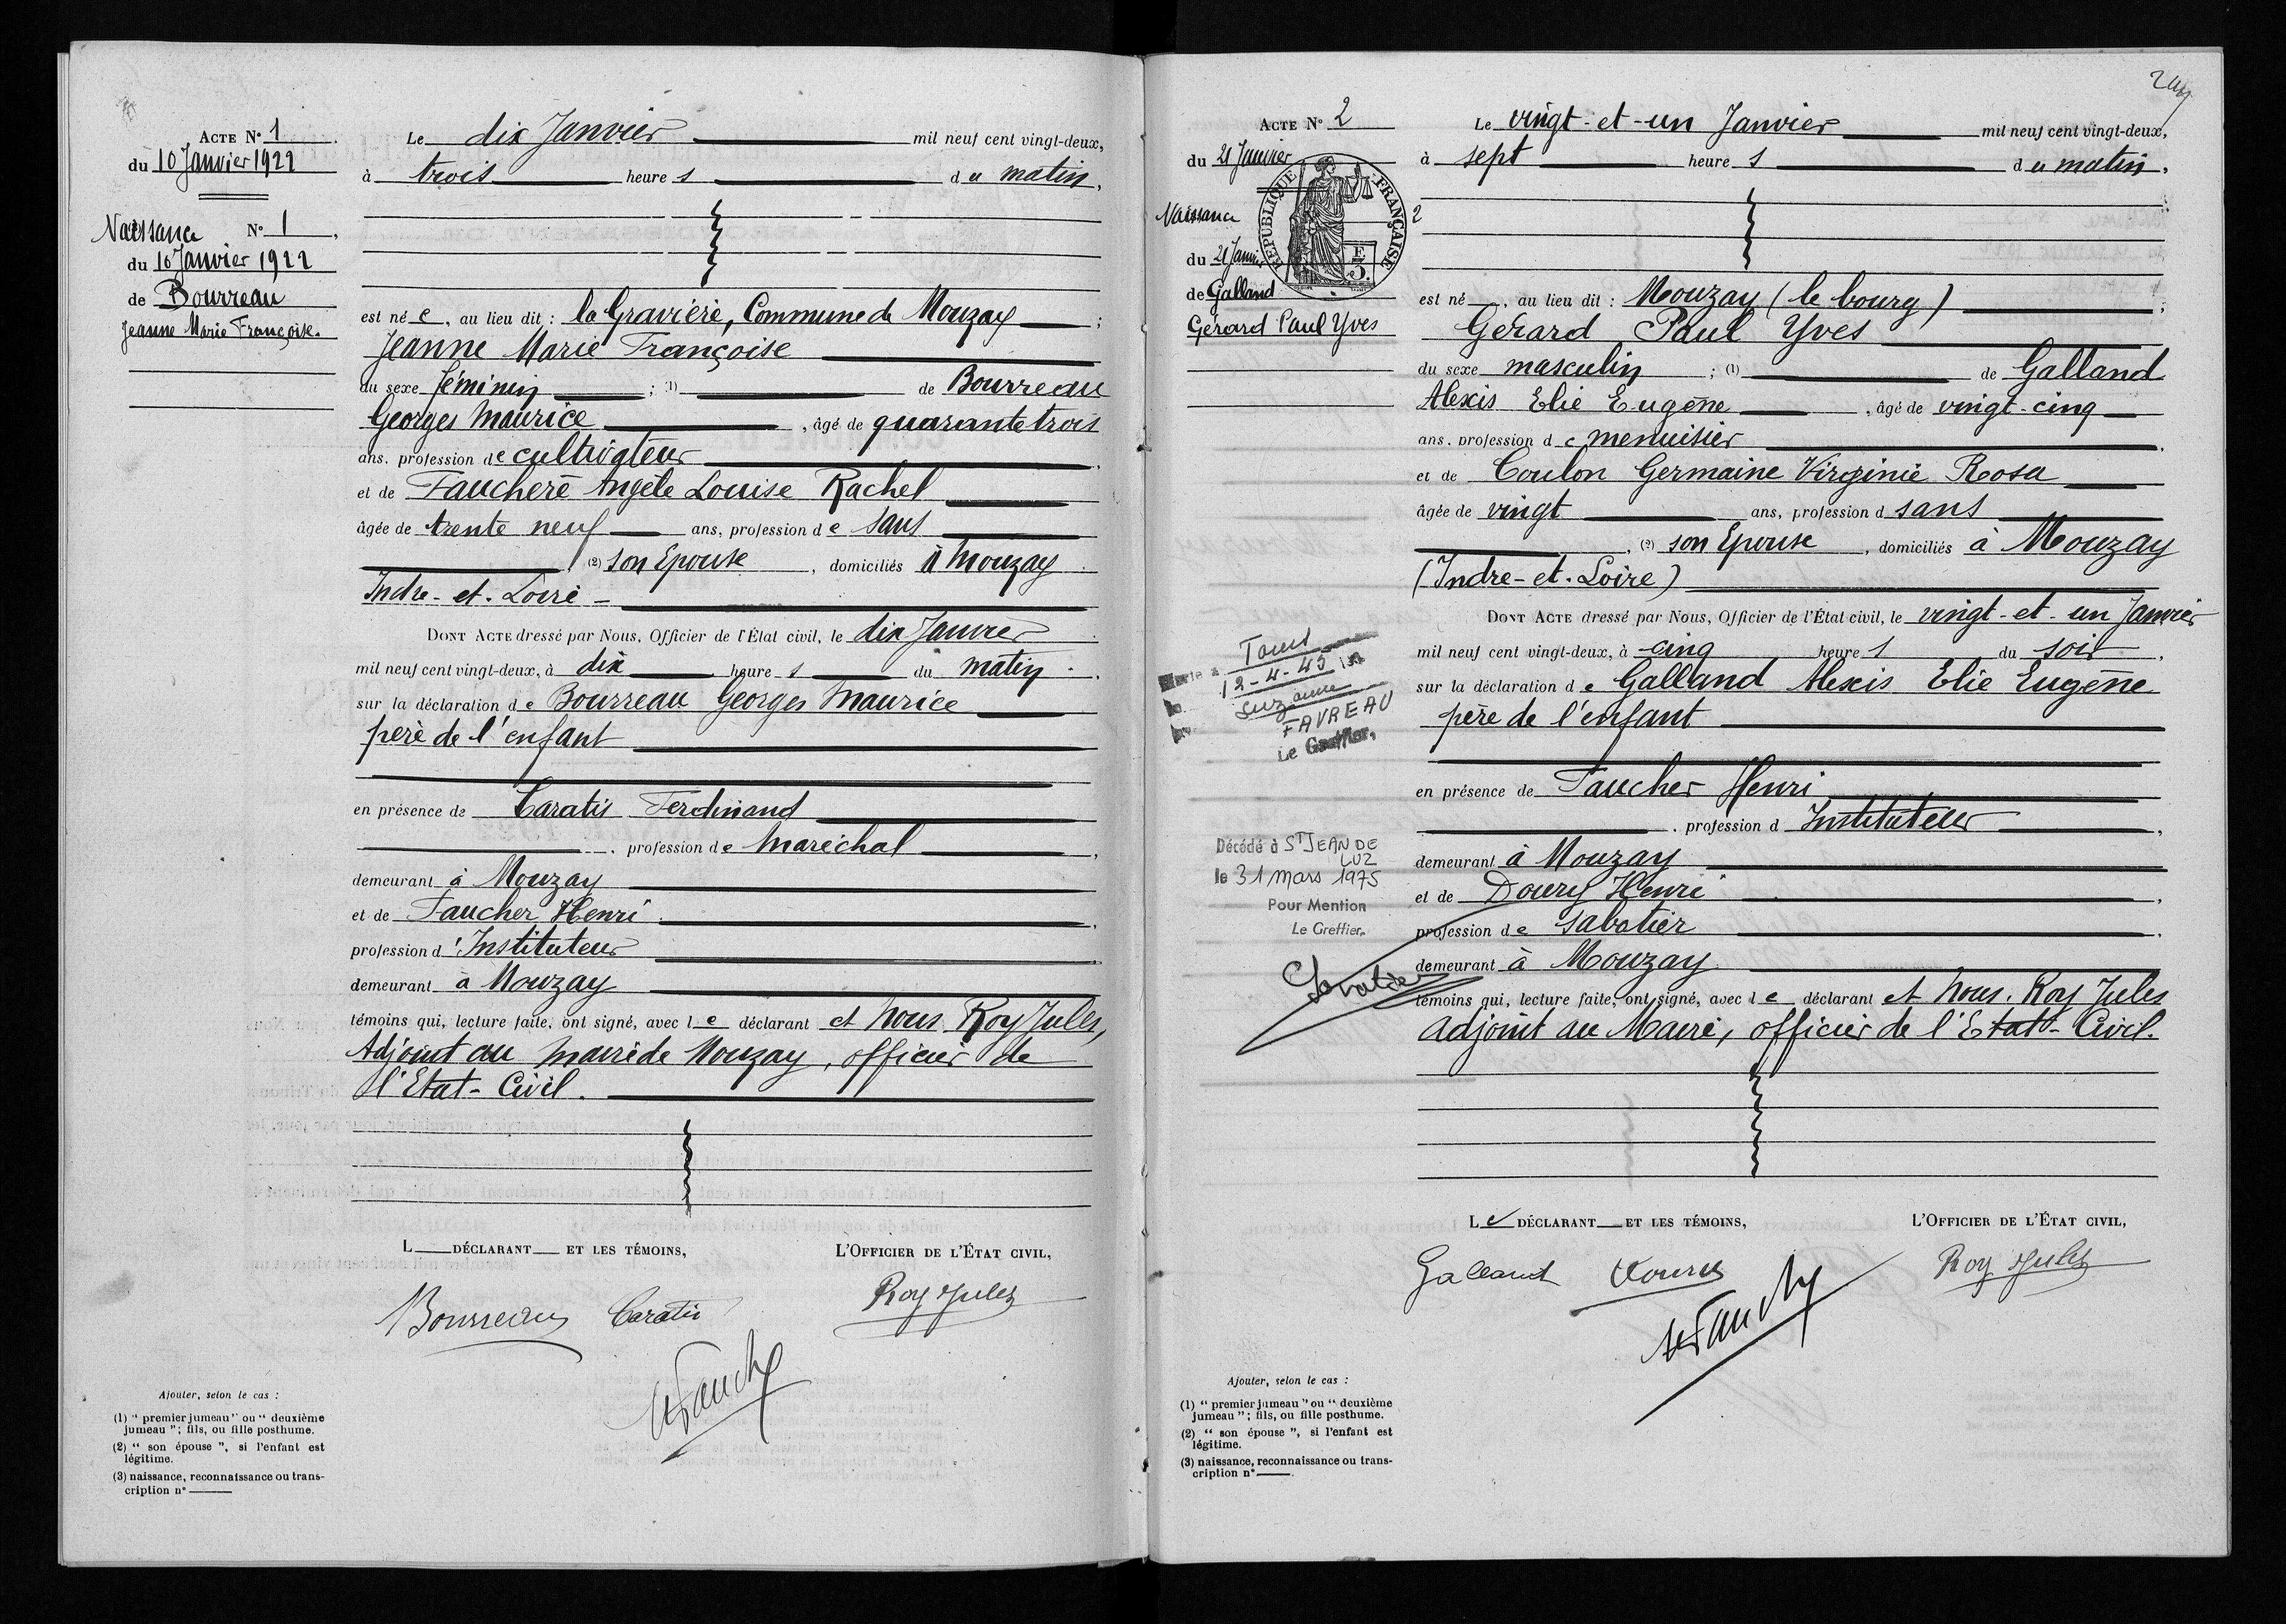 Acte N° 1
du 10 Janvier 1922
Naissance N° 1,
du 10 Janvier 1922
de Bourreau
Jeanne Marie Françoise.
Le dix Janvier mil neuf cent vingt-deux,
à trois heure s du matin,
est né e, au lieu dit : la Gravière, Commune de Mouzay ;
Jeanne Marie Françoise
du sexe féminin ; (1) de Bourreau
Georges Maurice, âgé de quarante trois
ans, profession de cultivateur
et de Faucheré Angèle Louise Rachel
âgée de trente neuf ans, profession de sans
, (2) son Epouse, domiciliés à Mouzay
Indre-et-Loire
Dont Acte dressé par Nous, Officier de l'État civil, le dix Janvier
mil neuf cent vingt-deux, à dix heure s du matin.
sur la déclaration de Bourreau Georges Maurice
père de l'enfant
en présence de Caratis Ferdinand
, profession de Maréchal,
demeurant à Mouzay
et de Faucher Henri
profession d'Instituteur
demeurant à Mouzay
témoins qui, lecture faite, ont signé, avec le déclarant et Nous Roy Jules,
Adjoint au Maire de Mouzay, officier de
l'Etat-Civil.
L déclarant et les témoins, L'Officier de l'État civil,
Bourreau Caratis Roy Jules
Ajouter, selon le cas :
(1) "premier jumeau" ou "deuxième
jumeau"; fils, ou fille posthume.
(2) "son épouse", si l'enfant est
légitime.
(3) naissance, reconnaissance ou trans-
cription n°
Acte N° 2
du 21 Janvier
Naissance 2
du 21 Janvier
de Galland
Gérard Paul Yves
RÉPUBLIQUE FRANÇAISE
Tours
12-4-45
Suzanne
FAVREAU
Le Greffier,
Décédé à St JEAN DE
LUZ
le 31 mars 1975
Pour Mention
Le Greffier,
Le vingt-et-un Janvier mil neuf cent vingt-deux,
à sept heure s du matin,
est né, au lieu dit : Mouzay (le bourg) ;
Gérard Paul Yves
du sexe masculin ; (1) de Galland
Alexis Elie Eugène, âgé de vingt-cinq
ans, profession de menuisier
et de Coulon Germaine Virginie Rosa
âgée de vingt ans, profession d sans
, (2) son Epouse, domiciliés à Mouzay
(Indre-et-Loire)
Dont Acte dressé par Nous, Officier de l'État civil, le vingt-et-un Janvier
mil neuf cent vingt-deux, à cinq heure s du soir,
sur la déclaration de Galland Alexis Elie Eugène
père de l'enfant
en présence de Faucher Henri
, profession d Instituteur,
demeurant à Mouzay
et de Doury Henri,
profession de sabotier,
demeurant à Mouzay
témoins qui, lecture faite, ont signé, avec le déclarant et Nous. Roy Jules
adjoint au Maire, officier de l'Etat-Civil.
Le déclarant et les témoins, L'Officier de l'État civil,
Galland Doury Roy Jules
Ajouter, selon le cas :
(1) "premier jumeau" ou "deuxième
jumeau"; fils, ou fille posthume.
(2) "son épouse", si l'enfant est
légitime.
(3) naissance, reconnaissance ou trans-
cription n°